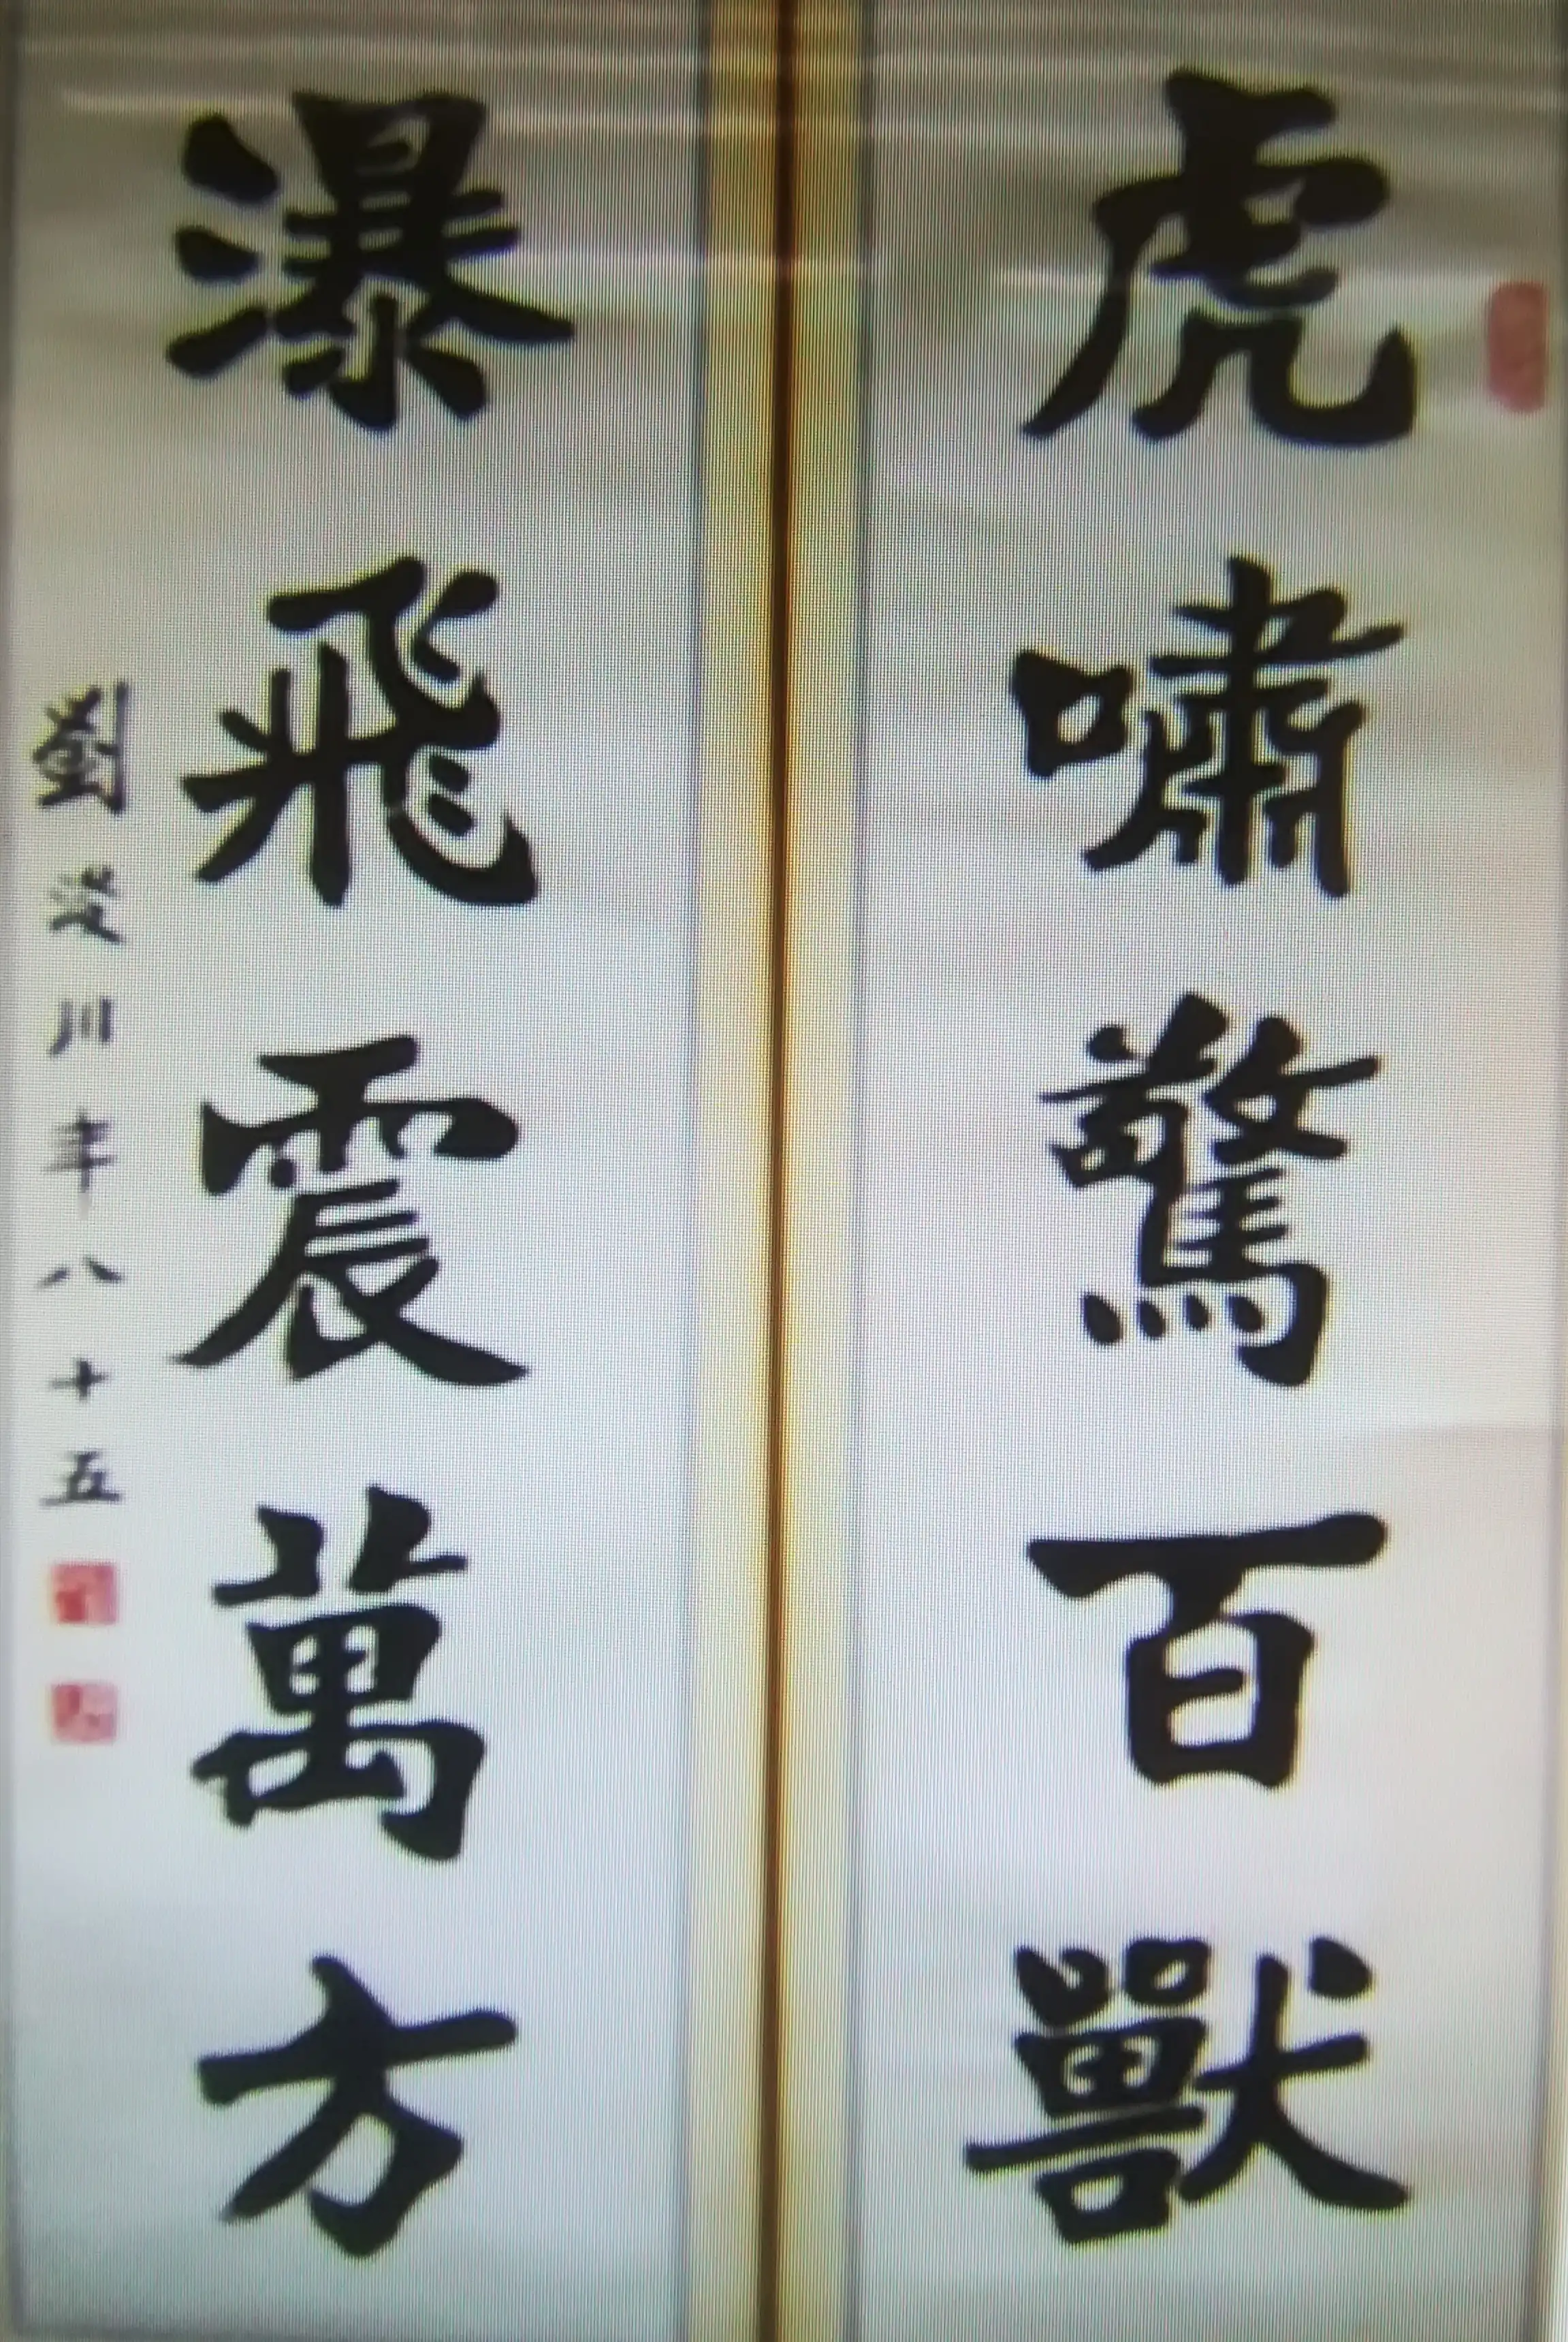 虎嘯驚百獸
瀑飛震萬方
劉炎川年八十五